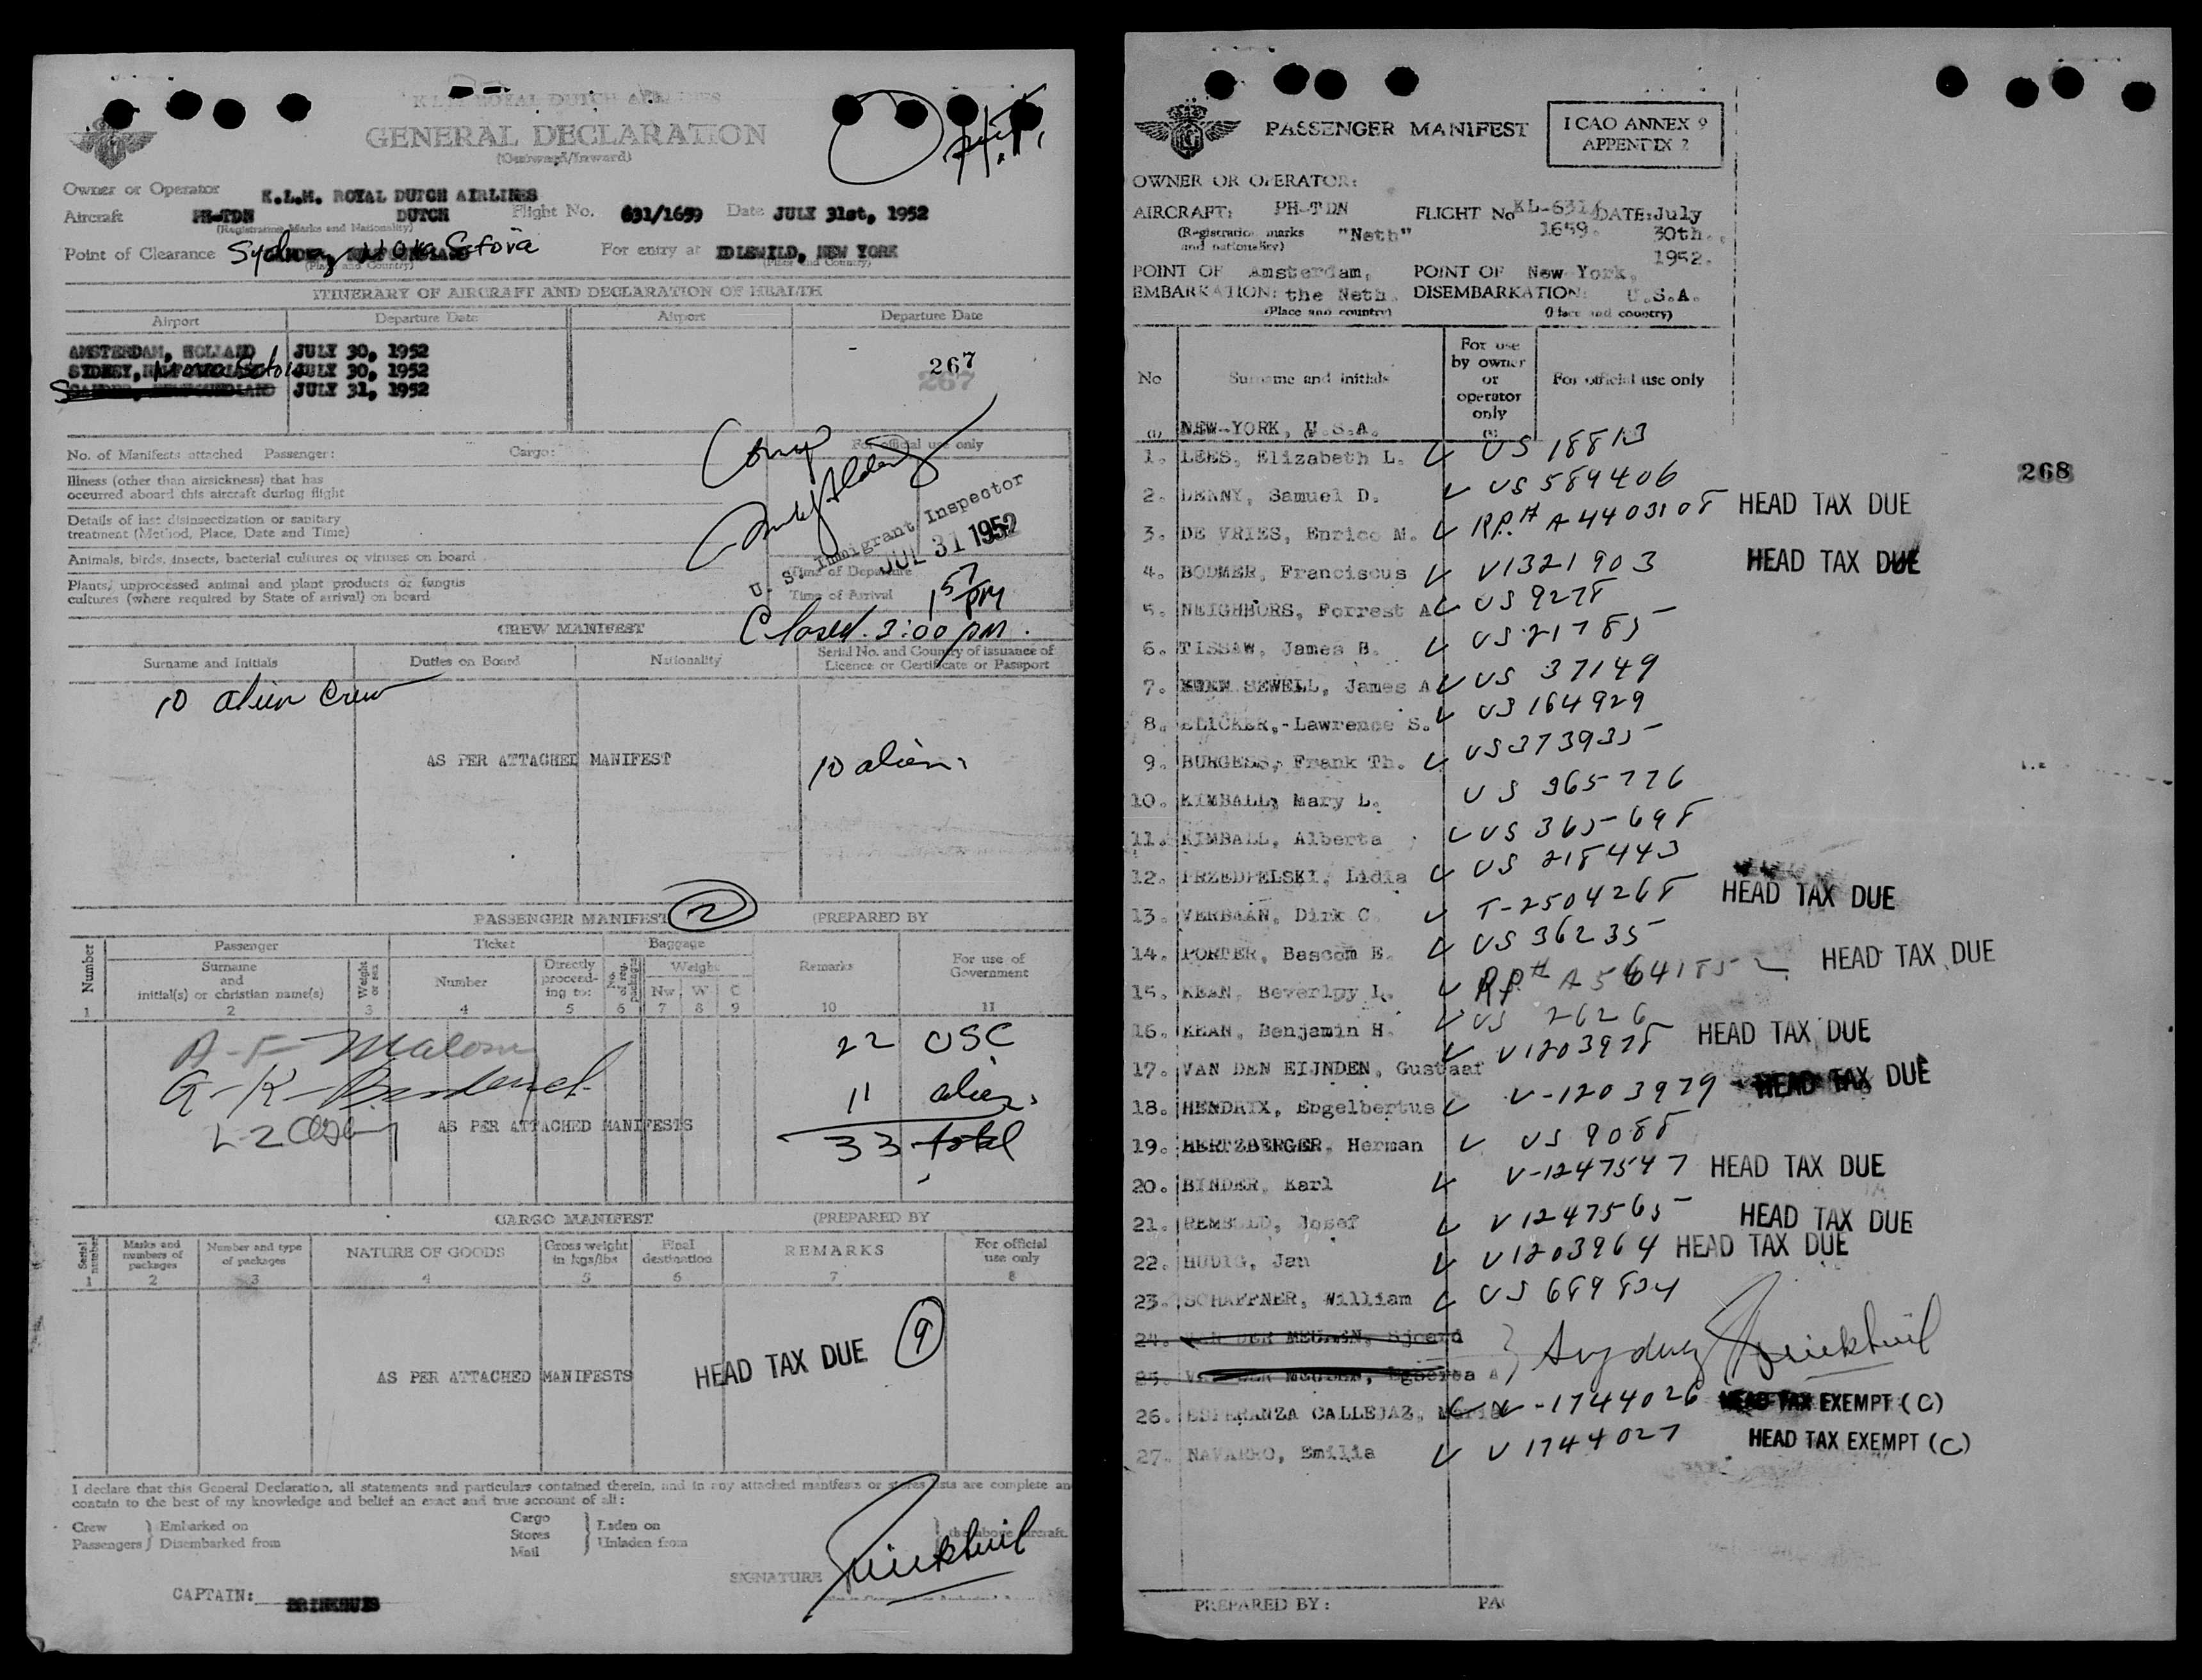 K.L.M. ROYAL DUTCH AIRLINES
GENERAL DECLARATION
(Outward/Inward)
Owner or Operator K.L.M. ROYAL DUTCH AIRLINES
Aircraft PH-TDN DUTCH Flight No. 631/1659 Date JULY 31st, 1952
(Registration Marks and Nationality)
Point of Clearance Sydney For entry at IDLEWILD, NEW YORK
(Place and Country) (Place and Country)
ITINERARY OF AIRCRAFT AND DECLARATION OF HEALTH
Airport Departure Date Airport Departure Date
AMSTERDAM, HOLLAND JULY 30, 1952
SYDNEY, JULY 30, 1952
JULY 31, 1952
267
267
No. of Manifests attached Passenger: Cargo:
For official use only
Illness (other than airsickness) that has
occurred aboard this aircraft during flight
Details of last disinsectization or sanitary
treatment (Method, Place, Date and Time)
Animals, birds, insects, bacterial cultures or viruses on board
Plants, unprocessed animal and plant products or fungus
cultures (where required by State of arrival) on board
U. S. Immigrant Inspector
JUL 31 1952
Time of Departure
Time of Arrival 1 57 PM
Closed 3:00 PM.
CREW MANIFEST
Surname and Initials Duties on Board Nationality Serial No. and Country of issuance of
Licence or Certificate or Passport
10 alien crew
AS PER ATTACHED MANIFEST
10 aliens
PASSENGER MANIFEST 2 (PREPARED BY
Number Passenger Ticket Baggage Remarks For use of Government
Surname
and
initial(s) or christian name(s)
Weight or sex
Number
Directly
proceed-
ing to:
Weight
Nw W C
1 2 3 4 5 6 7 8 9 10 11
A-F- Malone
G-K-
L-Z
AS PER ATTACHED MANIFESTS
22 USC
11 aliens
33 total
CARGO MANIFEST (PREPARED BY
Serial number
Marks and
numbers of
packages
Number and type
of packages
NATURE OF GOODS
Gross weight
in kgs/lbs
Final
destination
REMARKS
For official
use only
1 2 3 4 5 6 7 8
AS PER ATTACHED MANIFESTS
HEAD TAX DUE 9
I declare that this General Declaration, all statements and particulars contained therein, and in any attached manifests or stores lists are complete and
contain to the best of my knowledge and belief an exact and true account of all:
Crew
Passengers
Embarked on
Disembarked from
Cargo
Stores
Mail
Laden on
Unladen from
the above aircraft.
SIGNATURE
CAPTAIN: BRINKHUIS
PASSENGER MANIFEST
ICAO ANNEX 9
APPENDIX 2
OWNER OR OPERATOR:
AIRCRAFT: PH-TDN FLIGHT No KL-631/ 1659. DATE: July 30th. 1952.
(Registration marks
and nationality)
"Neth"
POINT OF EMBARKATION: Amsterdam, the Neth.
POINT OF DISEMBARKATION: New York, U.S.A.
(Place and country) (Place and country)
No Surname and initials
For use
by owner
or
operator
only
For official use only
(1) NEW-YORK, U.S.A.
268
1. LEES, Elizabeth L. US 18813
2. DENNY, Samuel D. US 589406
3. DE VRIES, Enrico M. RP# A4403108 HEAD TAX DUE
4. BODMER, Franciscus V1321903 HEAD TAX DUE
5. NEIGHBORS, Forrest A US 9278
6. TISSAW, James B. US 21785
7. SEWELL, James A US 37149
8. ELICKER,-Lawrence S. US 164929
9. BURGESS, Frank Th. US 373935
10. KIMBALL, Mary L. US 365776
11. KIMBALL, Alberta US 365698
12. PRZEDPELSKI, Lidia US 218443
13. VERBAAN, Dirk C. T-2504268 HEAD TAX DUE
14. PORTER, Bascom E. US 36235
15. KEAN, Beverlpy L. RP# A5641852 HEAD TAX DUE
16. KEAN, Benjamin H. US 2626
17. VAN DEN EIJNDEN, Gustaaf V1203978 HEAD TAX DUE
18. HENDRIX, Engelbertus V-1203979 HEAD TAX DUE
19. HERTZBERGER, Herman US 9088
20. BINDER, Karl V-1247547 HEAD TAX DUE
21. REMBOLD, Josef V1247565 HEAD TAX DUE
22. HUDIG, Jan V1203964 HEAD TAX DUE
23. SCHAFFNER, William US 689834
24. VAN DER MEULEN, Sjoerd
25. VAN DER MEULEN, Egberta A
Sydney
26. ESPERANZA CALLEJAZ, Maria V-1744026 HEAD TAX EXEMPT (C)
27. NAVARRO, Emilia V1744027 HEAD TAX EXEMPT (C)
PREPARED BY: PA